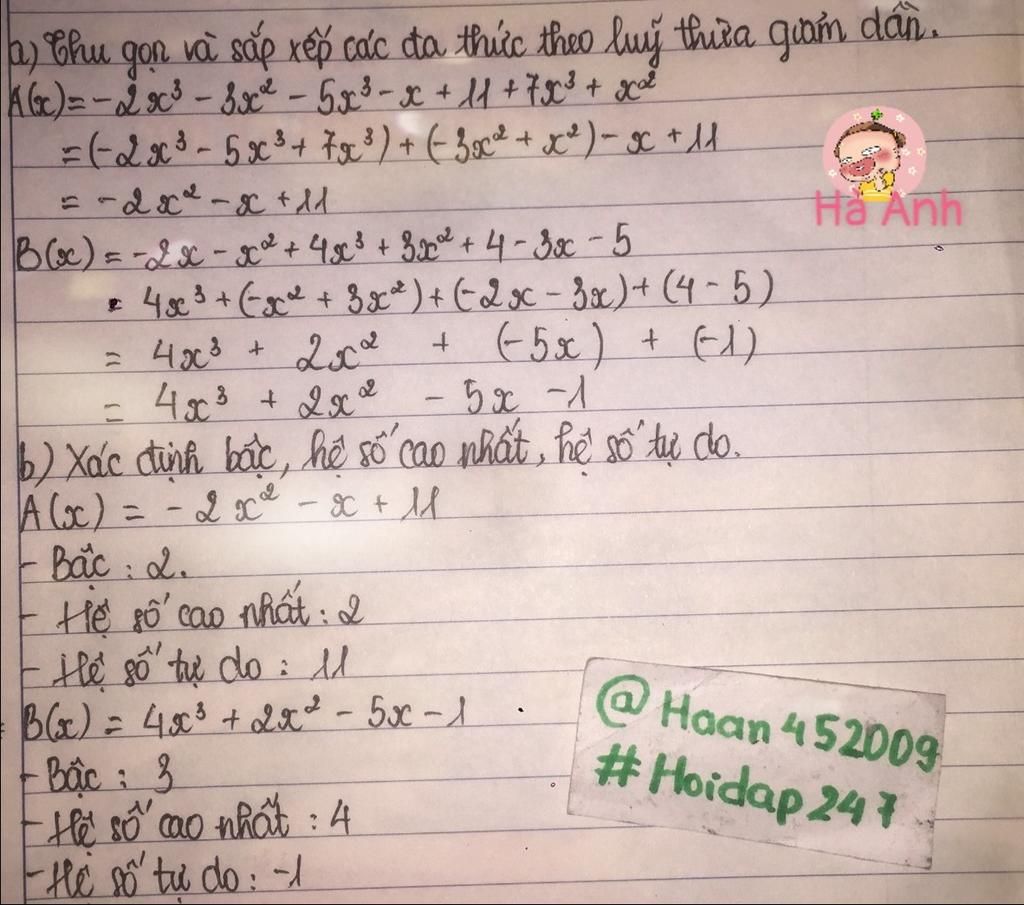 a) Thu gọn và sắp xếp các đa thức theo luỹ thừa giảm dần.
A(x) = -2x³ - 3x² - 5x³ - x + 11 + 7x³ + x²
= (-2x³ - 5x³ + 7x³) + (-3x² + x²) - x + 11
= -2x² - x + 11
Hà Anh
B(x) = -2x - x² + 4x³ + 3x² + 4 - 3x - 5
= 4x³ + (-x² + 3x²) + (-2x - 3x) + (4 - 5)
= 4x³ + 2x² + (-5x) + (-1)
= 4x³ + 2x² - 5x - 1
b) Xác định bậc, hệ số cao nhất, hệ số tự do.
A(x) = -2x² - x + 11
- Bậc : 2.
- Hệ số cao nhất : 2
- Hệ số tự do : 11
B(x) = 4x³ + 2x² - 5x - 1
- Bậc : 3
- Hệ số cao nhất : 4
- Hệ số tự do : -1
@Haan452009
#Hoidap247